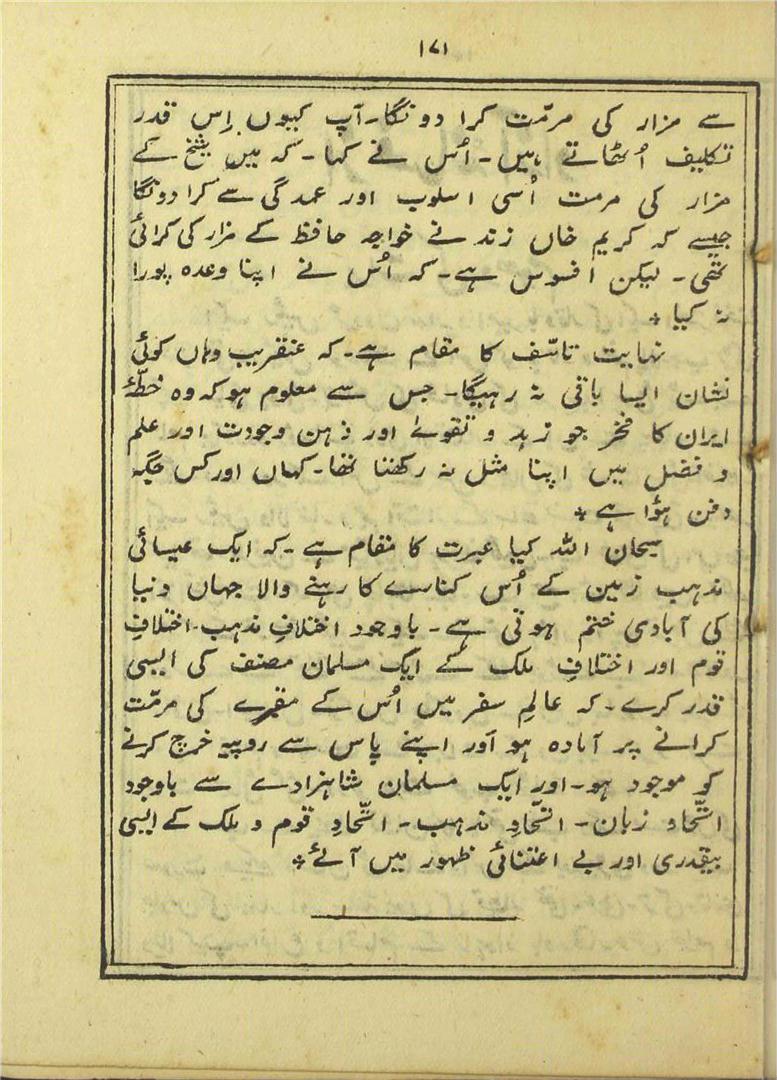 ۱۷۱
سے مزار کی مرمّت کرا دونگا۔ آپ کیوں اِس قدر
تکلیف اُٹھاتے ہیں۔ اُس نے کہا۔ کہ میں شیخ کے
مزار کی مرمت اُسی اسلوب اور عمدگی سے کرا دونگا
جیسے کہ کریم خاں زند نے خواجہ حافظ کے مزار کی کرائی
تھی۔ لیکن افسوس ہے۔ کہ اُس نے اپنا وعدہ پورا
نہ کیا ٭
نہایت تاسّف کا مقام ہے۔ کہ عنقریب وہاں کوئی
نشان ایسا باقی نہ رہیگا۔ جس سے معلوم ہو کہ وہ خطّۂ
ایران کا فخر جو زہد و تقوےٰ اور ذہن وجودت اور علم
و فضل میں اپنا مثل نہ رکھتا تھا۔ کہاں اور کس جگہ
دفن ہؤا ہے ٭
سبحان اللہ کیا عبرت کا مقام ہے۔ کہ ایک عیسائی
مذہب زمین کے اُس کنارے کا رہنے والا جہاں دنیا
کی آبادی ختم ہوتی ہے۔ باوجود اختلافِ مذہب۔ اختلافِ
قوم اور اختلافِ ملک کے ایک مسلمان مصنف کی ایسی
قدر کرے۔ کہ عالمِ سفر میں اُس کے مقبرے کی مرمّت
کرانے پر آمادہ ہو اَور اپنے پاس سے روپیہ خرچ کرنے
کو موجود ہو۔ اور ایک مسلمان شاہزادے سے باوجود
اتّحاد زبان۔ اتّحادِ مذہب۔ اتّحادِ قوم و ملک کے ایسی
بیقدری اور بے اعتنائی ظہور میں آئے ٭